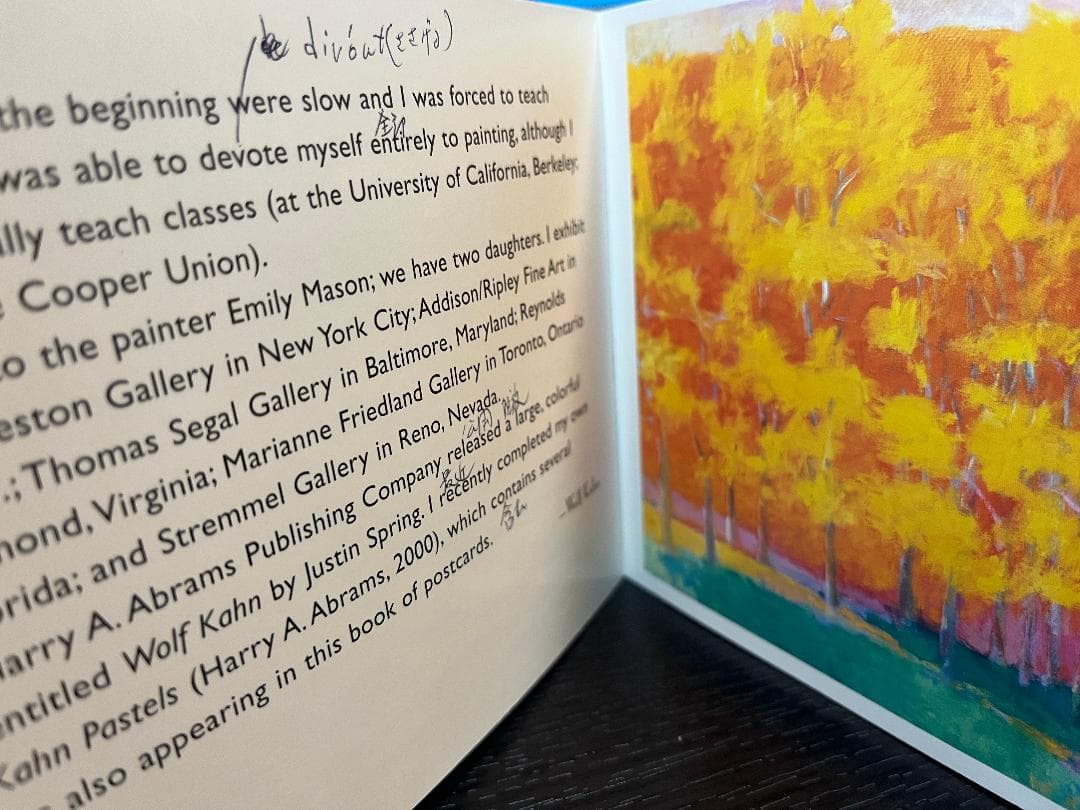 divóut(ささげる)
the beginning were slow and I was forced to teach
was able to devote myself entirely to painting, although I
ally teach classes (at the University of California, Berkeley;
e Cooper Union).
to the painter Emily Mason; we have two daughters. I exhibit
eston Gallery in New York City; Addison/Ripley Fine Art in
.; Thomas Segal Gallery in Baltimore, Maryland; Reynolds
mond, Virginia; Marianne Friedland Gallery in Toronto, Ontario
orida; and Stremmel Gallery in Reno, Nevada.
Harry A. Abrams Publishing Company released a large, colorful
entitled Wolf Kahn by Justin Spring. I recently completed my own
Kahn Pastels (Harry A. Abrams, 2000), which contains several
also appearing in this book of postcards.